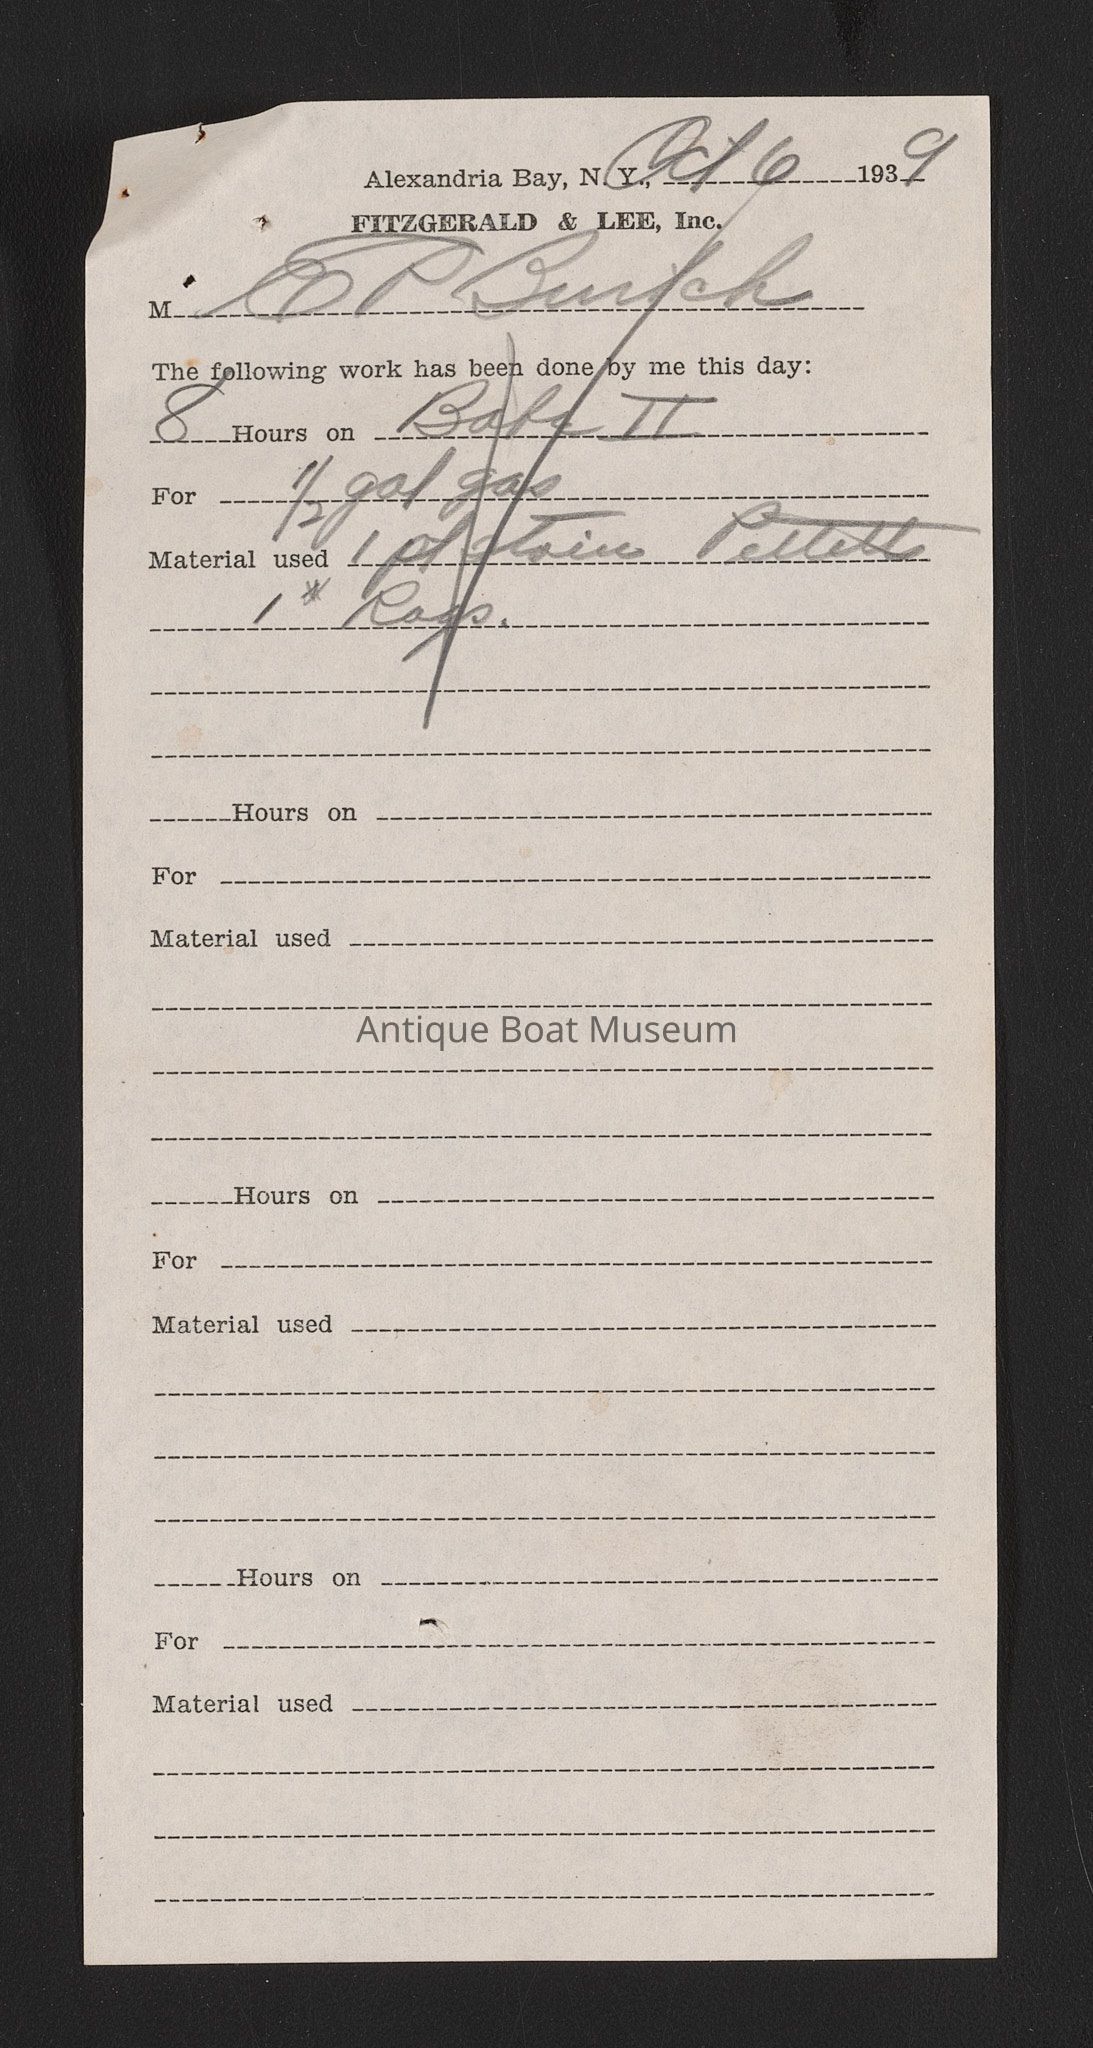 Alexandria Bay, N. Y., Oct 6 1939
FITZGERALD & LEE, Inc.
M E P Burtch
The following work has been done by me this day:
8 Hours on Baby II
For 1/2 gal gas
Material used 1 pt stain Pettits
1 # Rags.
Hours on
For
Material used
Antique Boat Museum
Hours on
For
Material used
Hours on
For
Material used